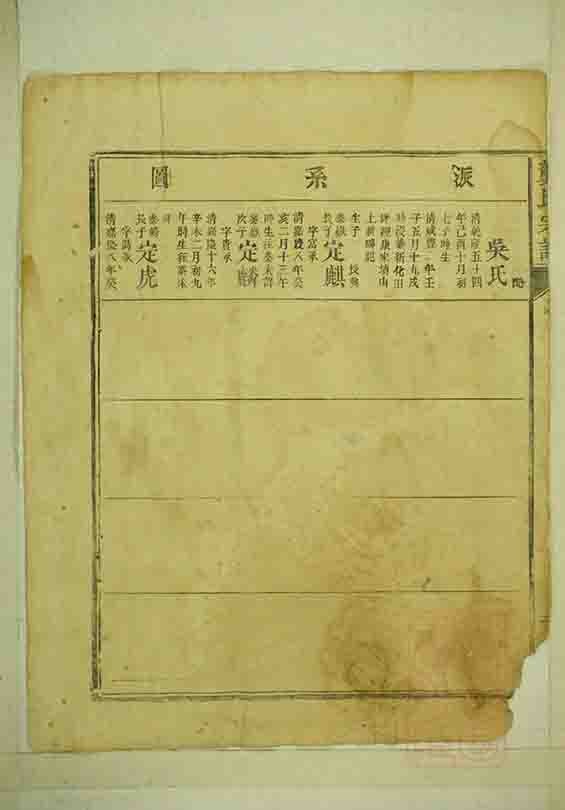 派系圖
吳氏
清乾隆五十四
年己酉十月初
七子時生
清咸豐一年壬
子五月十九戌
時沒葬新化田
坪裡康家塘山
上新碑記
生子
泰嶽長子定麒
字富承
清嘉慶八年癸
亥二月十三午
時生往葬未詳
泰嶽次子定麟
字貴承
清嘉慶十六年
辛未二月初九
年時生往葬未
詳
長子定虎
清嘉慶八年癸